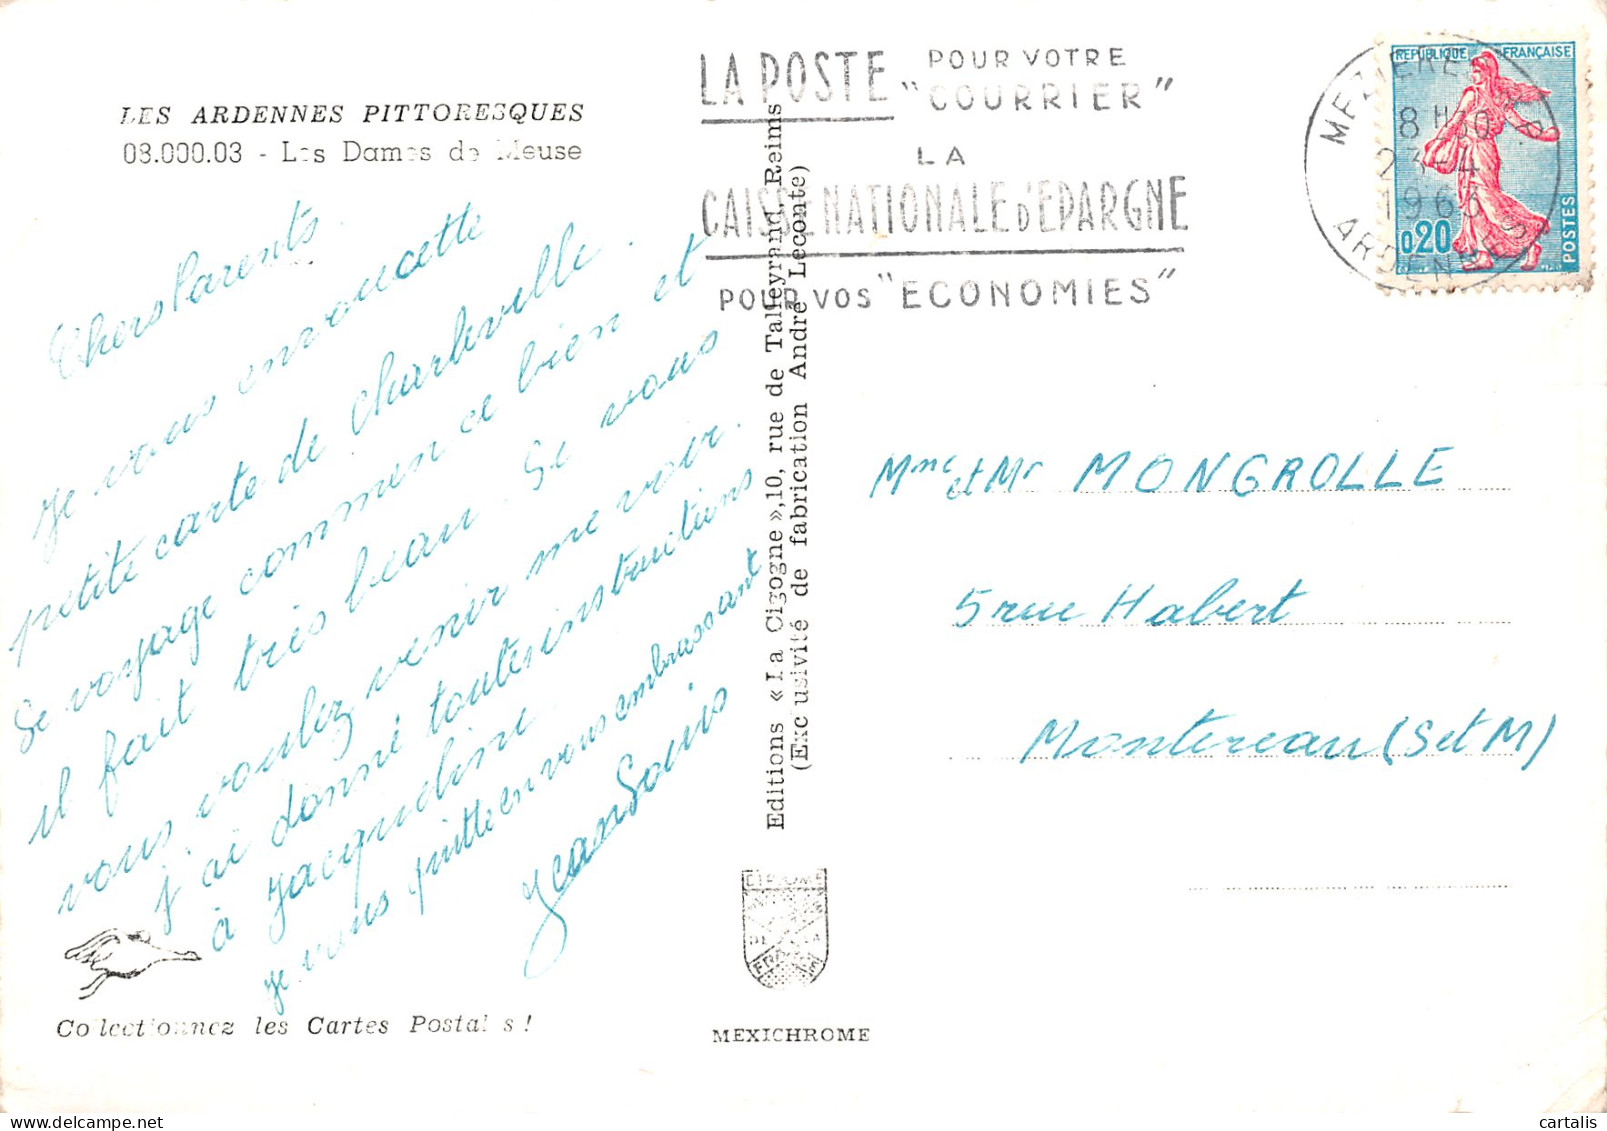 LES ARDENNES PITTORESQUES
08.000.03 - Les Dames de Meuse
Chers Parents.
Je vous envoi cette
petite carte de Charleville.
Se voyage commence bien et
il fait très beau. Si vous
vous voulez venir me voir.
j'ai donné toutes instructions
à Jacqueline.
Je vous quitte en vous embrassant
Jean Louis
Collectionnez les Cartes Postales !
Editions « La Cigogne », 10, rue de Talleyrand, Reims
(Exclusivité de fabrication André Leconte)
MEXICHROME
LA POSTE POUR VOTRE "COURRIER"
LA
CAISSE NATIONALE D'EPARGNE
POUR VOS "ECONOMIES"
REPUBLIQUE FRANÇAISE
0,20
POSTES
MEZIERES
8 H30
23-4
1963
ARDENNES
Mme et Mr MONGROLLE
5 rue Habert
Montereau (S et M)
cartalis